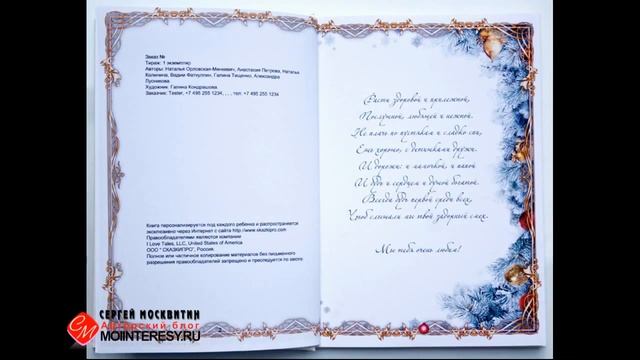 Заказ №
Тираж: 1 экземпляр
Авторы: Наталья Орловская-Минкевич, Анастасия Петрова, Наталья
Калинина, Вадим Фаткуллин, Галина Тищенко, Александра
Лусникова
Художник: Галина Кондрашова
Заказчик: Tester, +7 495 255 1234, , , , тел: +7 495 255 1234
Книга персонализируется под каждого ребенка и распространяется
эксклюзивно через Интернет с сайта http://www.skazkipro.com
Правообладателями являются компании
I Love Tales, LLC, United States of America
ООО " СКАЗКИПРО", Россия.
Полное или частичное копирование материалов без письменного
разрешения правообладателей запрещено и преследуется по закону.
Расти здоровой и прилежной,
Послушной, любящей и нежной.
Не плачь по пустякам и сладко спи,
Ешь хорошо, с детишками дружи.
И дорожи: и мамочкой, и папой
И будь и сердцем и душой богатой.
Всегда будь первой среди всех,
Чтоб слышали мы твой задорный смех.
Мы тебя очень любим!
СЕРГЕЙ МОСКВИТИН
Авторский блог
MOIINTERESY.RU